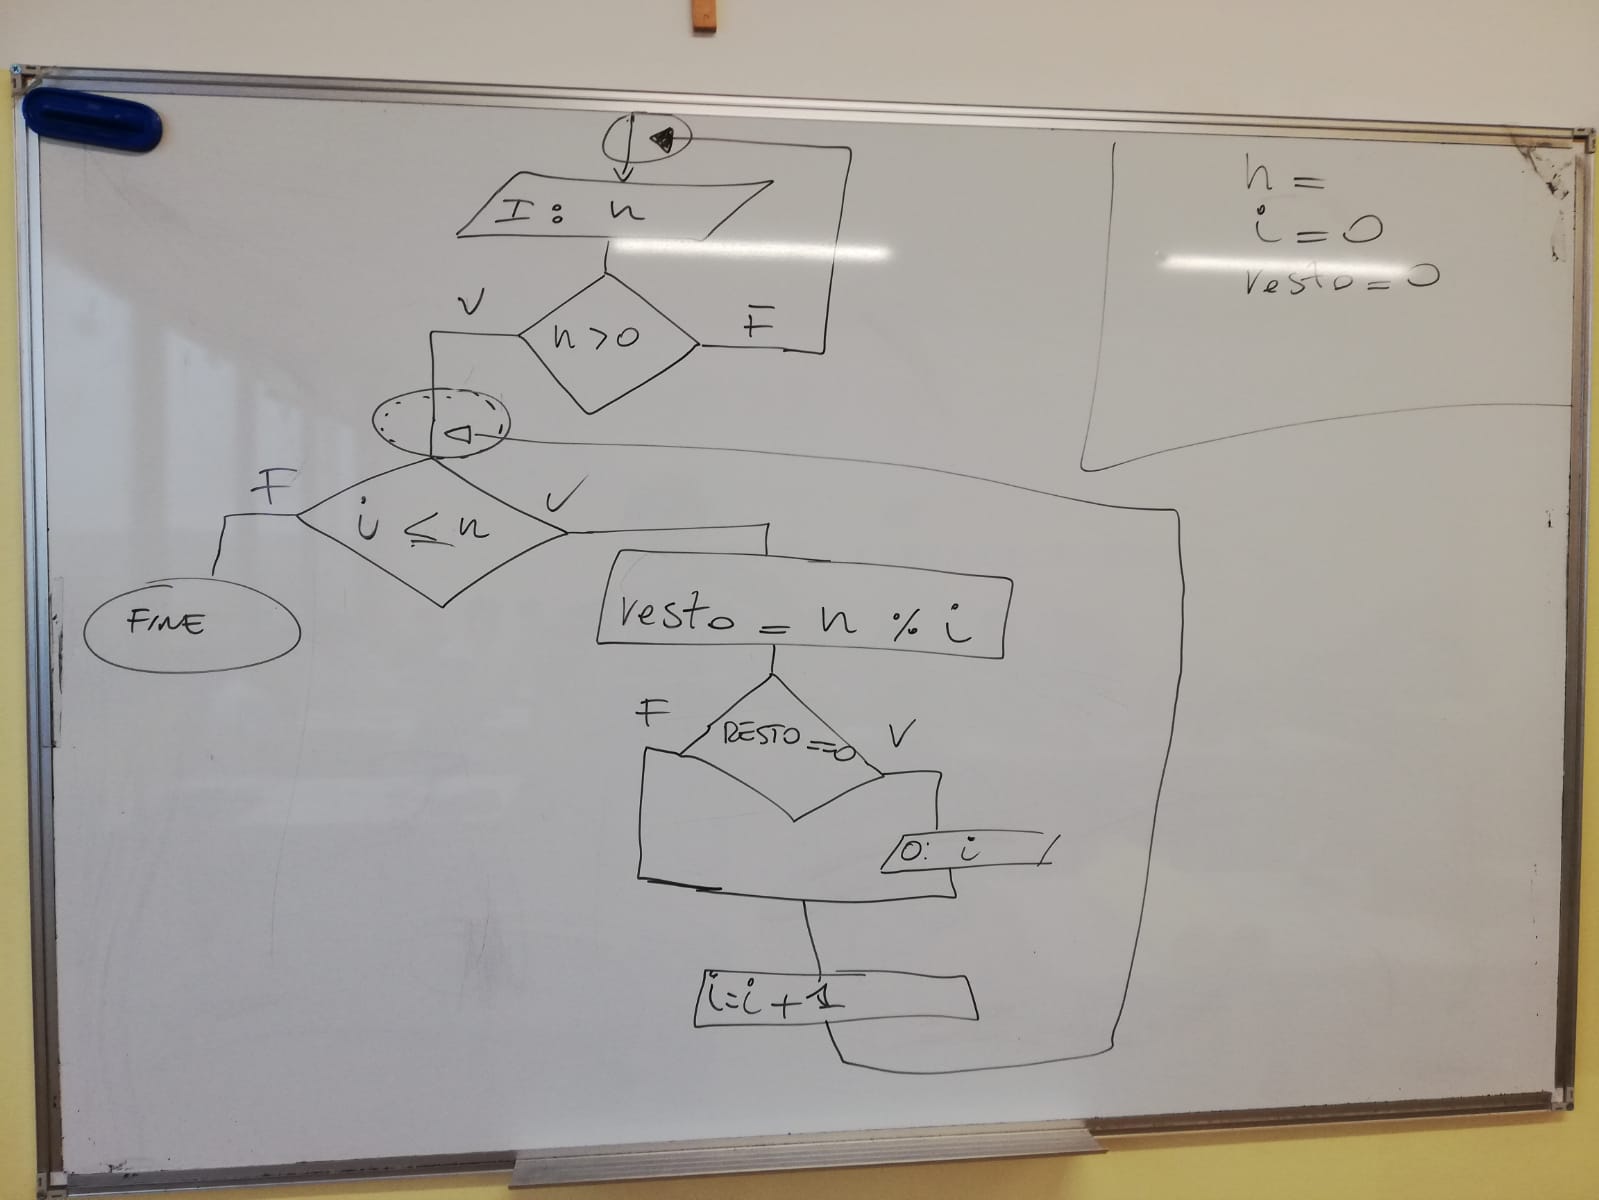 I: n
n>0
V
F
i ≤ n
F
V
FINE
resto = n % i
RESTO==0
F
V
O: i
i=i+1
n =
i = 0
resto = 0